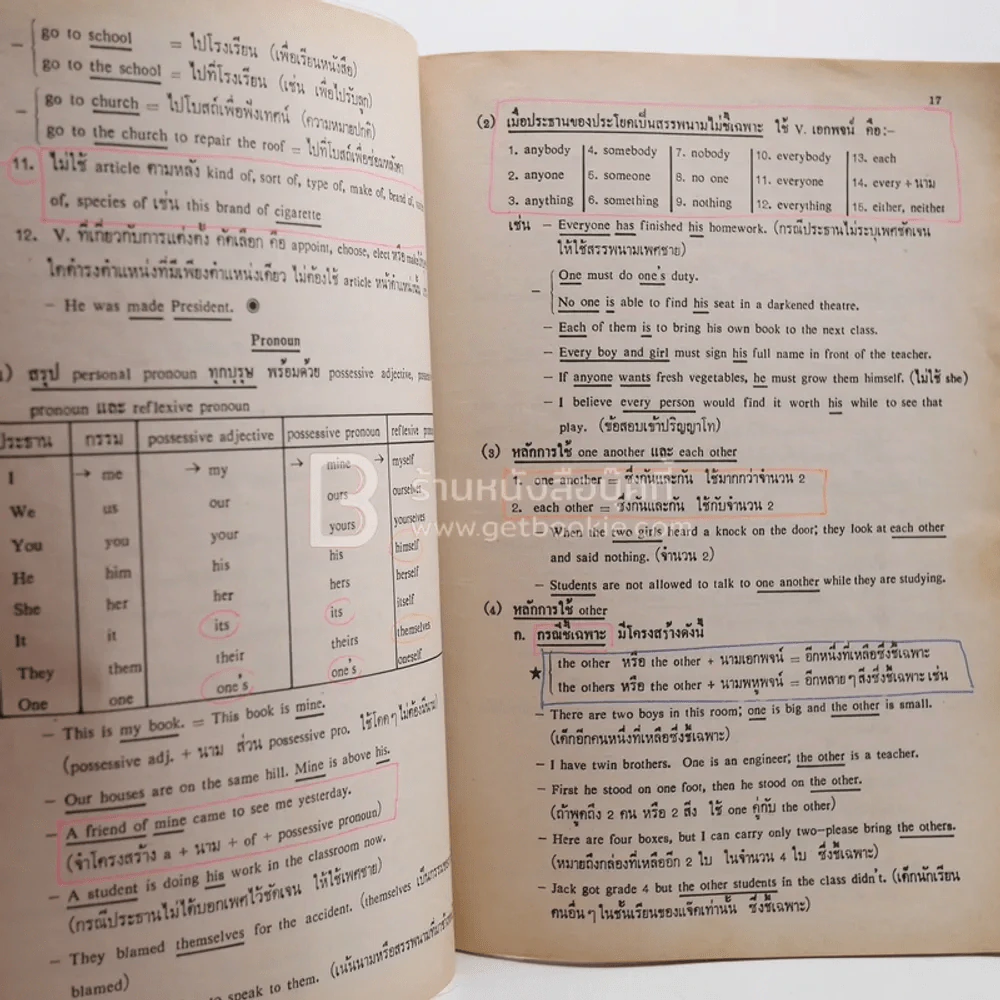 go to school = ไปโรงเรียน (เพื่อเรียนหนังสือ)
go to the school = ไปที่โรงเรียน (เช่น เพื่อไปรับลูก)
go to church = ไปโบสถ์เพื่อฟังเทศน์ (ความหมายปกติ)
go to the church to repair the roof = ไปที่โบสถ์เพื่อซ่อมหลังคา
11. ไม่ใช้ article ตามหลัง kind of, sort of, type of, make of, brand of,
of, species of เช่น this brand of cigarette
12. V. ที่เกี่ยวกับการแต่งตั้ง คัดเลือก คือ appoint, choose, elect หรือ make
ใดดำรงตำแหน่งที่มีเพียงตำแหน่งเดียว ไม่ต้องใช้ article หน้าตำแหน่งนั้น
– He was made President.
Pronoun
) สรุป personal pronoun ทุกบุรุษ พร้อมด้วย possessive adjective,
pronoun และ reflexive pronoun
ประธาน กรรม possessive adjective possessive pronoun reflexive
I → me → my → mine → myself
We us our ours ourselves
You you your yours yourselves
He him his his himself
She her her hers herself
It it its its itself
They them their theirs themselves
One one one's one's oneself
– This is my book. = This book is mine.
(possessive adj. + นาม ส่วน possessive pro. ใช้โดดๆ ไม่ต้องมีนาม)
– Our houses are on the same hill. Mine is above his.
– A friend of mine came to see me yesterday.
(จำโครงสร้าง a + นาม + of + possessive pronoun)
– A student is doing his work in the classroom now.
(กรณีประธานไม่ได้บอกเพศไว้ชัดเจน ให้ใช้เพศชาย)
– They blamed themselves for the accident. (themselves เป็นกรรมของ
blamed)
to speak to them. (เน้นนามหรือสรรพนามที่มา
17
(2) เมื่อประธานของประโยคเป็นสรรพนามไม่ชี้เฉพาะ ใช้ V. เอกพจน์ คือ:–
1. anybody 4. somebody 7. nobody 10. everybody 13. each
2. anyone 5. someone 8. no one 11. everyone 14. every + นาม
3. anything 6. something 9. nothing 12. everything 15. either, neither
เช่น – Everyone has finished his homework. (กรณีประธานไม่ระบุเพศชัดเจน
ให้ใช้สรรพนามเพศชาย)
– One must do one's duty.
No one is able to find his seat in a darkened theatre.
– Each of them is to bring his own book to the next class.
– Every boy and girl must sign his full name in front of the teacher.
– If anyone wants fresh vegetables, he must grow them himself. (ไม่ใช้ she)
– I believe every person would find it worth his while to see that
play. (ข้อสอบเข้าปริญญาโท)
(3) หลักการใช้ one another และ each other
1. one another = ซึ่งกันและกัน ใช้มากกว่าจำนวน 2
2. each other = ซึ่งกันและกัน ใช้กับจำนวน 2
ร้านหนังสือบุ๊คกี้
www.getbookie.com
– When the two girls heard a knock on the door; they look at each other
and said nothing. (จำนวน 2)
– Students are not allowed to talk to one another while they are studying.
(4) หลักการใช้ other
ก. กรณีชี้เฉพาะ มีโครงสร้างดังนี้
★ the other หรือ the other + นามเอกพจน์ = อีกหนึ่งที่เหลือซึ่งชี้เฉพาะ
the others หรือ the other + นามพหูพจน์ = อีกหลายๆ สิ่งซึ่งชี้เฉพาะ เช่น
– There are two boys in this room; one is big and the other is small.
(เด็กอีกคนหนึ่งที่เหลือซึ่งชี้เฉพาะ)
– I have twin brothers. One is an engineer; the other is a teacher.
– First he stood on one foot, then he stood on the other.
(ถ้าพูดถึง 2 คน หรือ 2 สิ่ง ใช้ one คู่กับ the other)
– Here are four boxes, but I can carry only two–please bring the others.
(หมายถึงกล่องที่เหลืออีก 2 ใบ ในจำนวน 4 ใบ ซึ่งชี้เฉพาะ)
– Jack got grade 4 but the other students in the class didn't. (เด็กนักเรียน
คนอื่นๆ ในชั้นเรียนของแจ๊คเท่านั้น ซึ่งชี้เฉพาะ)